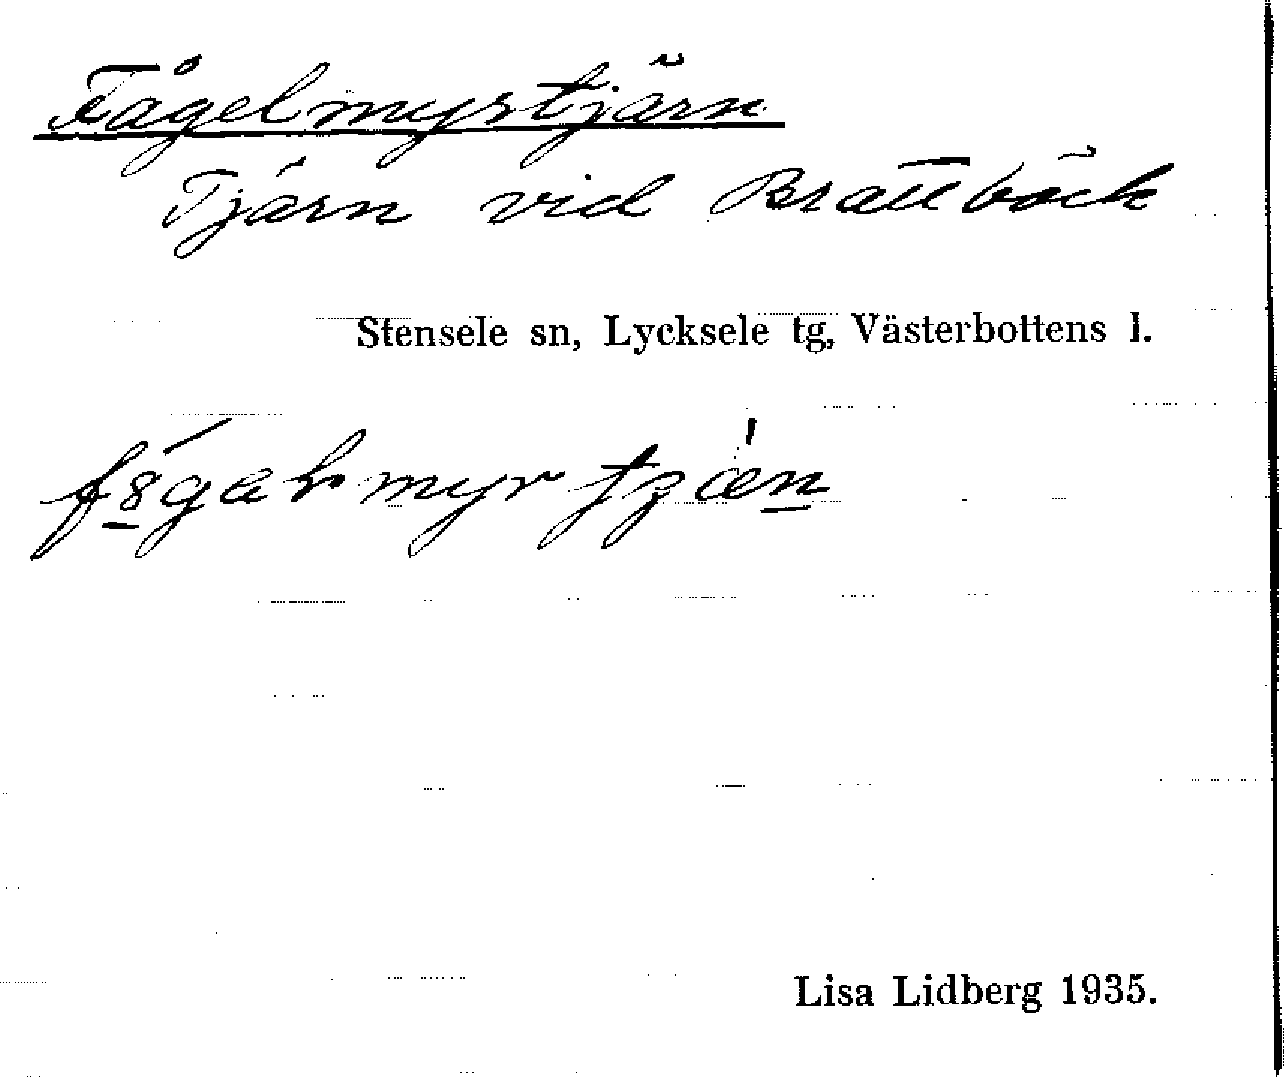 Fågelmyrstjärn
Tjärn vid Brattbäck
Stensele sn, Lycksele tg, Västerbottens l.
Lisa Lidberg 1935.